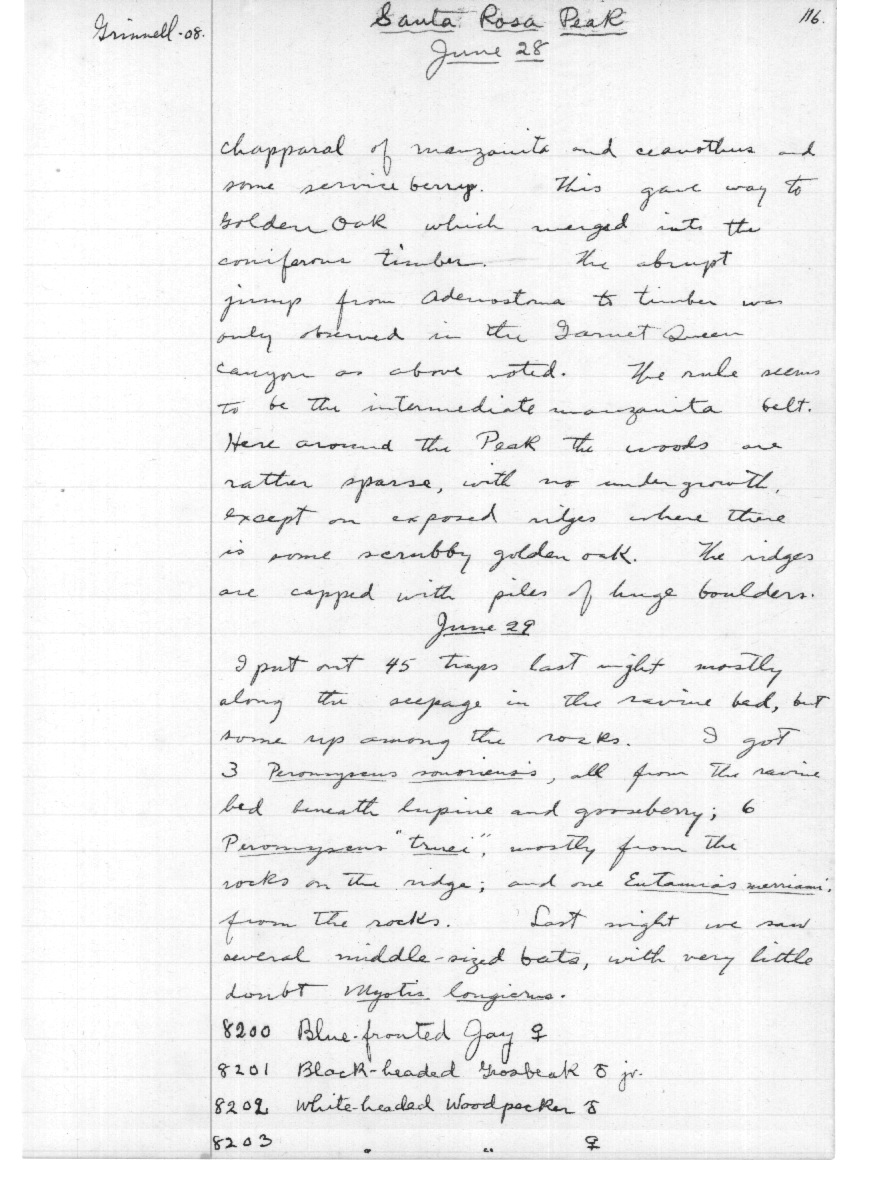 Grinnell-08.
Santa Rosa Peak
116.
June 28
chapparal of manzanita and ceanothus and
some service berry. This gave way to
Golden Oak which merged into the
coniferous timber. The abrupt
jump from Adenostoma to timber was
only observed in the Garnet Queen
Canyon as above noted. The rule seems
to be the intermediate manzanita belt.
Here around the Peak the woods are
rather sparse, with no undergrowth,
except on exposed ridges where there
is some scrubby golden oak. The ridges
are capped with piles of huge boulders.
June 29
I put out 45 traps last night mostly
along the seepage in the ravine bed, but
some up among the rocks. I got
3 Peromyscus sonoriensis, all from the ravine
bed beneath lupine and gooseberry; 6
Peromyscus "truei", mostly from the
rocks on the ridge; and one Eutamias merriami,
from the rocks. Last night we saw
several middle-sized bats, with very little
doubt Myotis longicrus.
8200 Blue-fronted Jay ♀
8201 Black-headed Grosbeak ♂ jr.
8202 White-headed Woodpecker ♂
8203 " " ♀